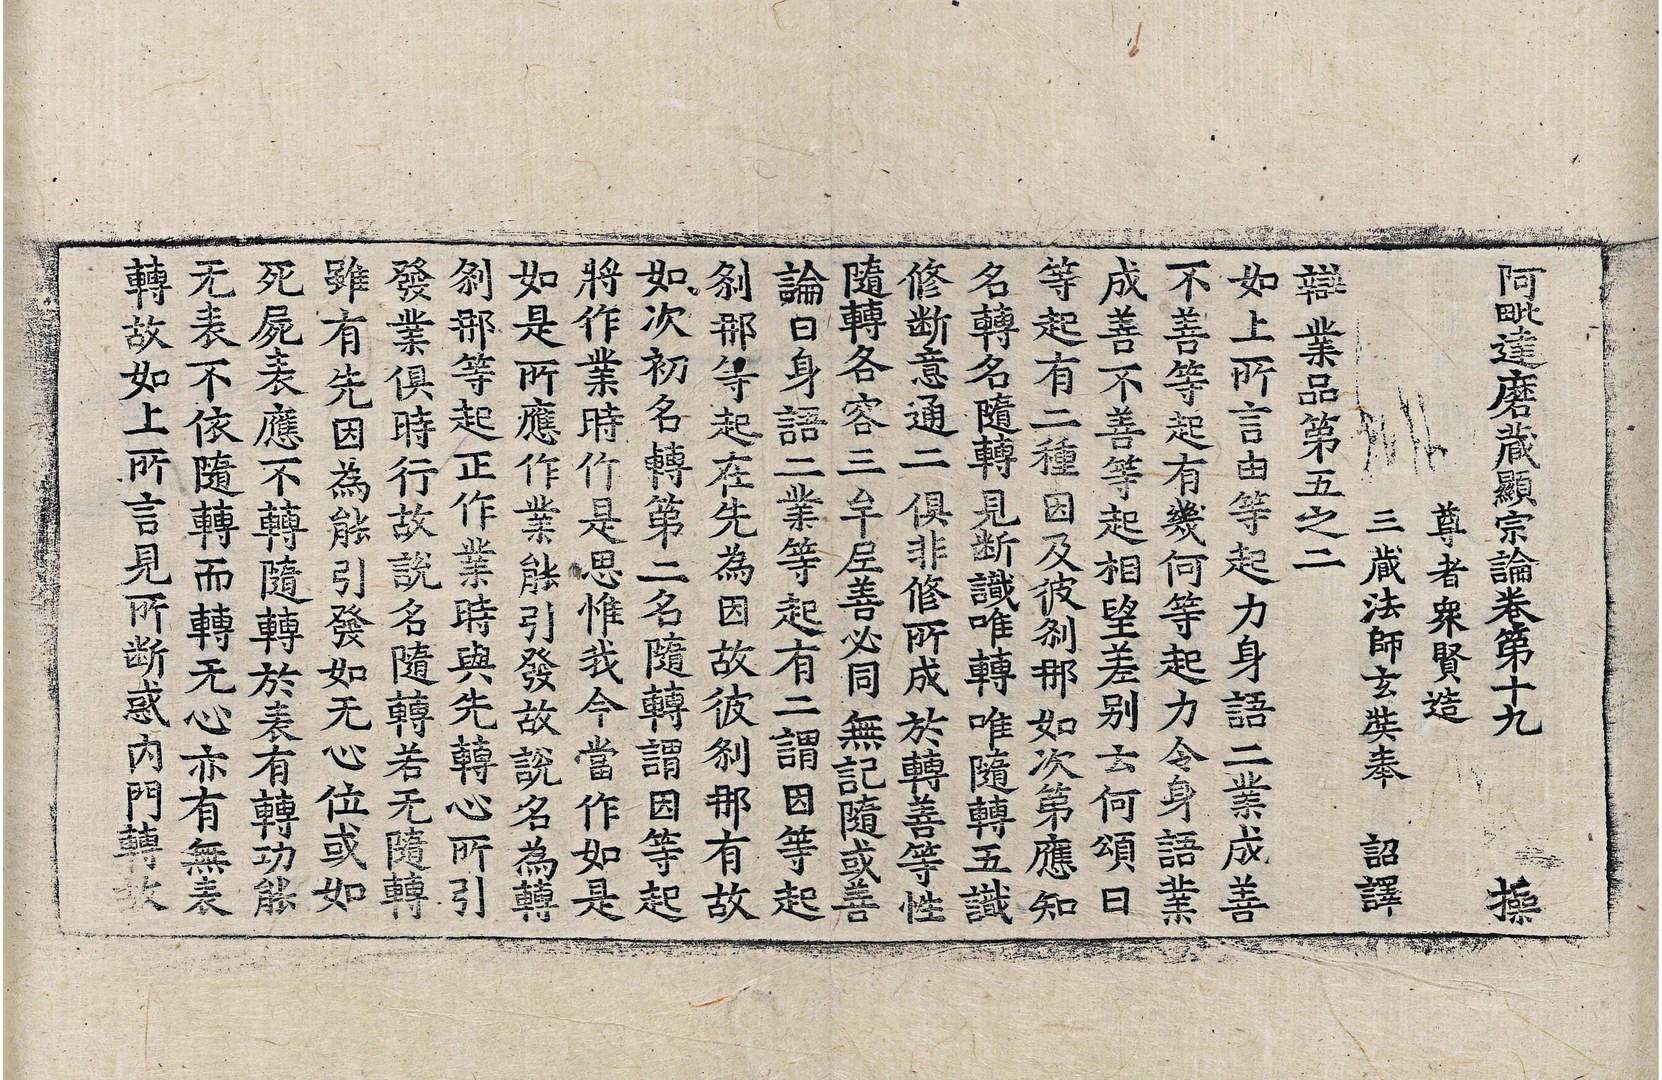 阿毗達磨藏顯宗論卷第十九 操
尊者衆賢造
三藏法師玄奘奉 詔譯
辯業品第五之二
如上所言由等起力身語二業成善
不善等起有幾何等起力令身語業
成善不善等起相望差別云何頌曰
等起有二種因及彼刹那如次第應知
名轉名隨轉見斷識唯轉唯隨轉五識
修斷意通二俱非修所成於轉善等性
隨轉各容三牟尼善必同無記隨或善
論曰身語二業等起有二謂因等起
刹那等起在先為因故彼刹那有故
如次初名轉第二名隨轉謂因等起
將作業時作是思惟我今當作如是
如是所應作業能引發故說名為轉
刹那等起正作業時與先轉心所引
發業俱時行故說名隨轉若无隨轉
雖有先因為能引發如无心位或如
死屍表應不轉隨轉於表有轉功能
无表不依隨轉而轉无心亦有無表
轉故如上所言見所斷惑內門轉故